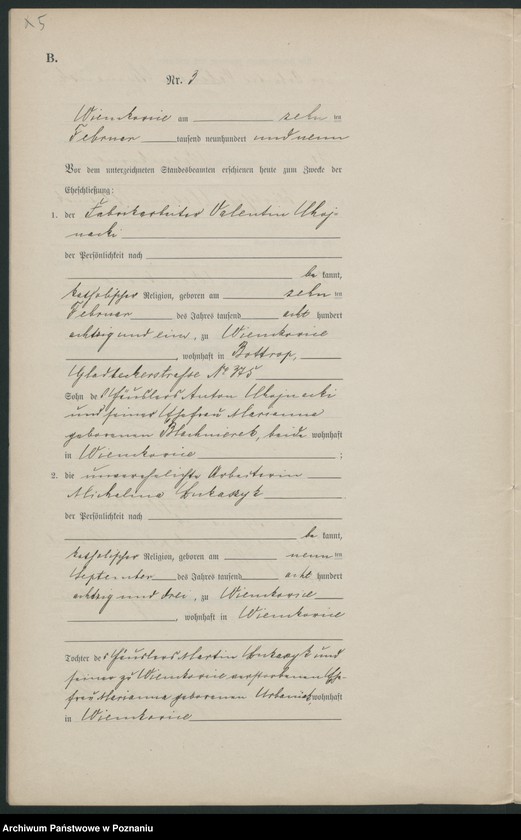 x5
B.
Nr. 3
Wiemkowice am zehn ten
Februar tausend neunhundert und neun
Vor dem unterzeichneten Standesbeamten erschienen heute zum Zwecke der
Eheschließung:
1. der Fabrikarbeiter Valentin
der Persönlichkeit nach
be kannt,
katholischer Religion, geboren am zehn ten
Februar des Jahres tausend acht hundert
achtzig und ein, zu Wiemkowice
, wohnhaft in Bottrop,
Gladbeckerstrasse No 375
Sohn des Häuslers Anton
und seiner Ehefrau Marianna
geborenen, beide wohnhaft
in Wiemkowice ;
2. die unverehelichte Arbeiterin
Michalina Lukaszyk
der Persönlichkeit nach
be kannt,
katholischer Religion, geboren am neun ten
September des Jahres tausend acht hundert
achtzig und drei, zu Wiemkowice
, wohnhaft in Wiemkowice
Tochter des Häuslers Martin Lukaszyk und
seiner zu Wiemkowice verstorbenen Ehe-
frau Marianna geborenen Urbaniak wohnhaft
in Wiemkowice
Archiwum Państwowe w Poznaniu